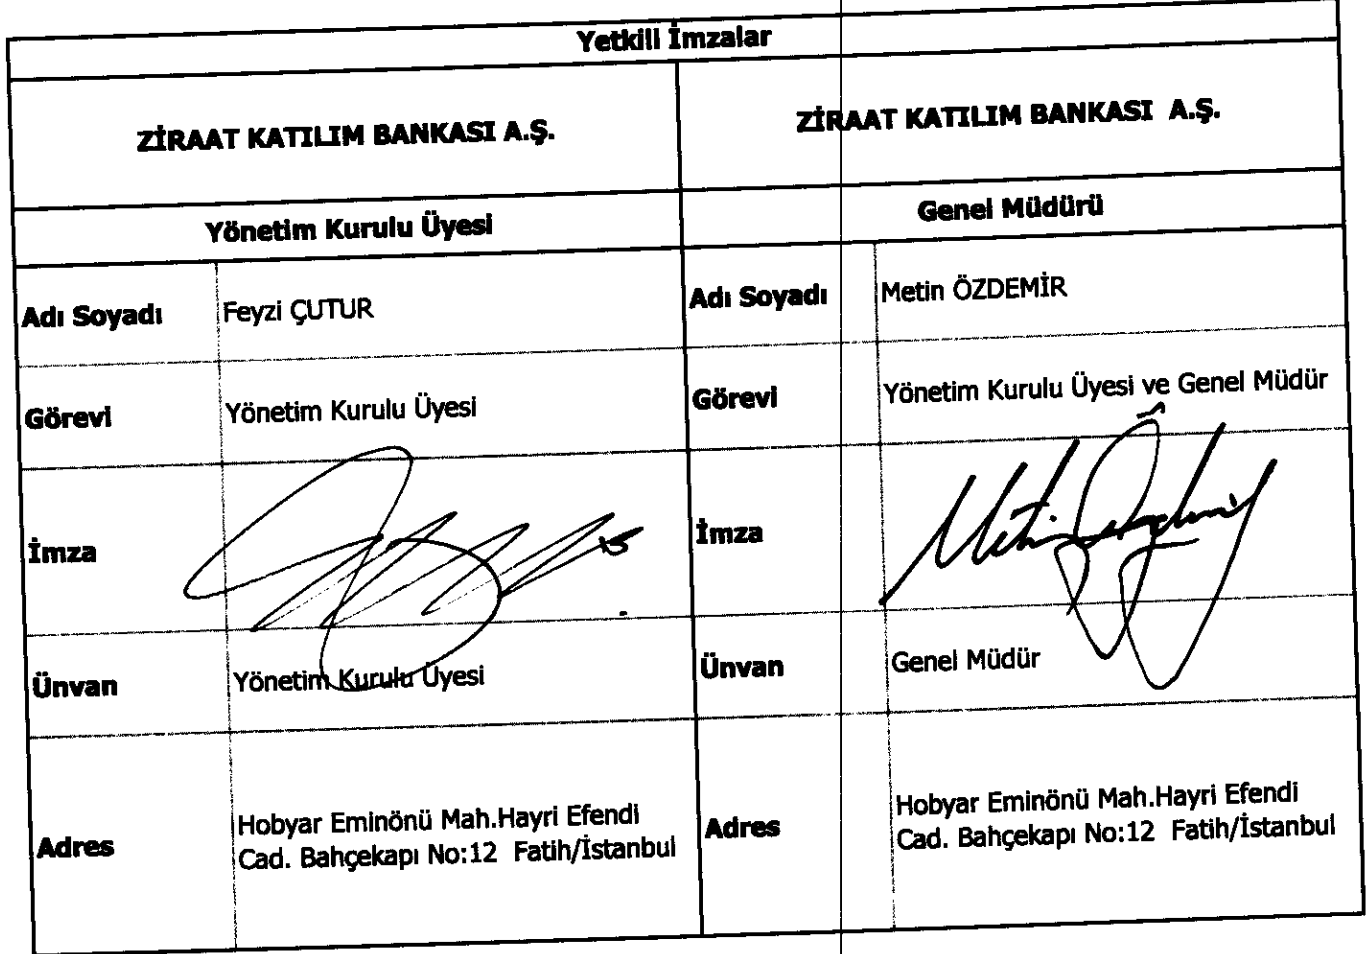 Yetkili İmzalar
ZİRAAT KATILIM BANKASI A.Ş.
ZİRAAT KATILIM BANKASI A.Ş.
Yönetim Kurulu Üyesi
Genel Müdürü
Adı Soyadı
Feyzi ÇUTUR
Adı Soyadı
Metin ÖZDEMİR
Görevi
Yönetim Kurulu Üyesi
Görevi
Yönetim Kurulu Üyesi ve Genel Müdür
İmza
İmza
Metin Özdemir
Ünvan
Yönetim Kurulu Üyesi
Ünvan
Genel Müdür
Adres
Hobyar Eminönü Mah.Hayri Efendi
Cad. Bahçekapı No:12 Fatih/İstanbul
Adres
Hobyar Eminönü Mah.Hayri Efendi
Cad. Bahçekapı No:12 Fatih/İstanbul